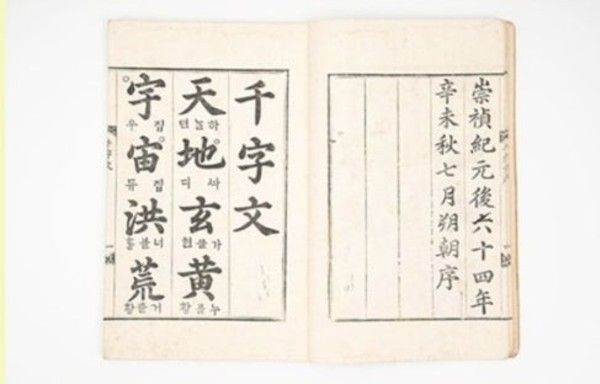 崇禎紀元後六十四年
辛未秋七月朔朝序
千字文
天地玄黃
하늘 텬
싸 디
가믈 현
누를 황
宇宙洪荒
집 우
집
너 홍
거츨 황
千字文 一